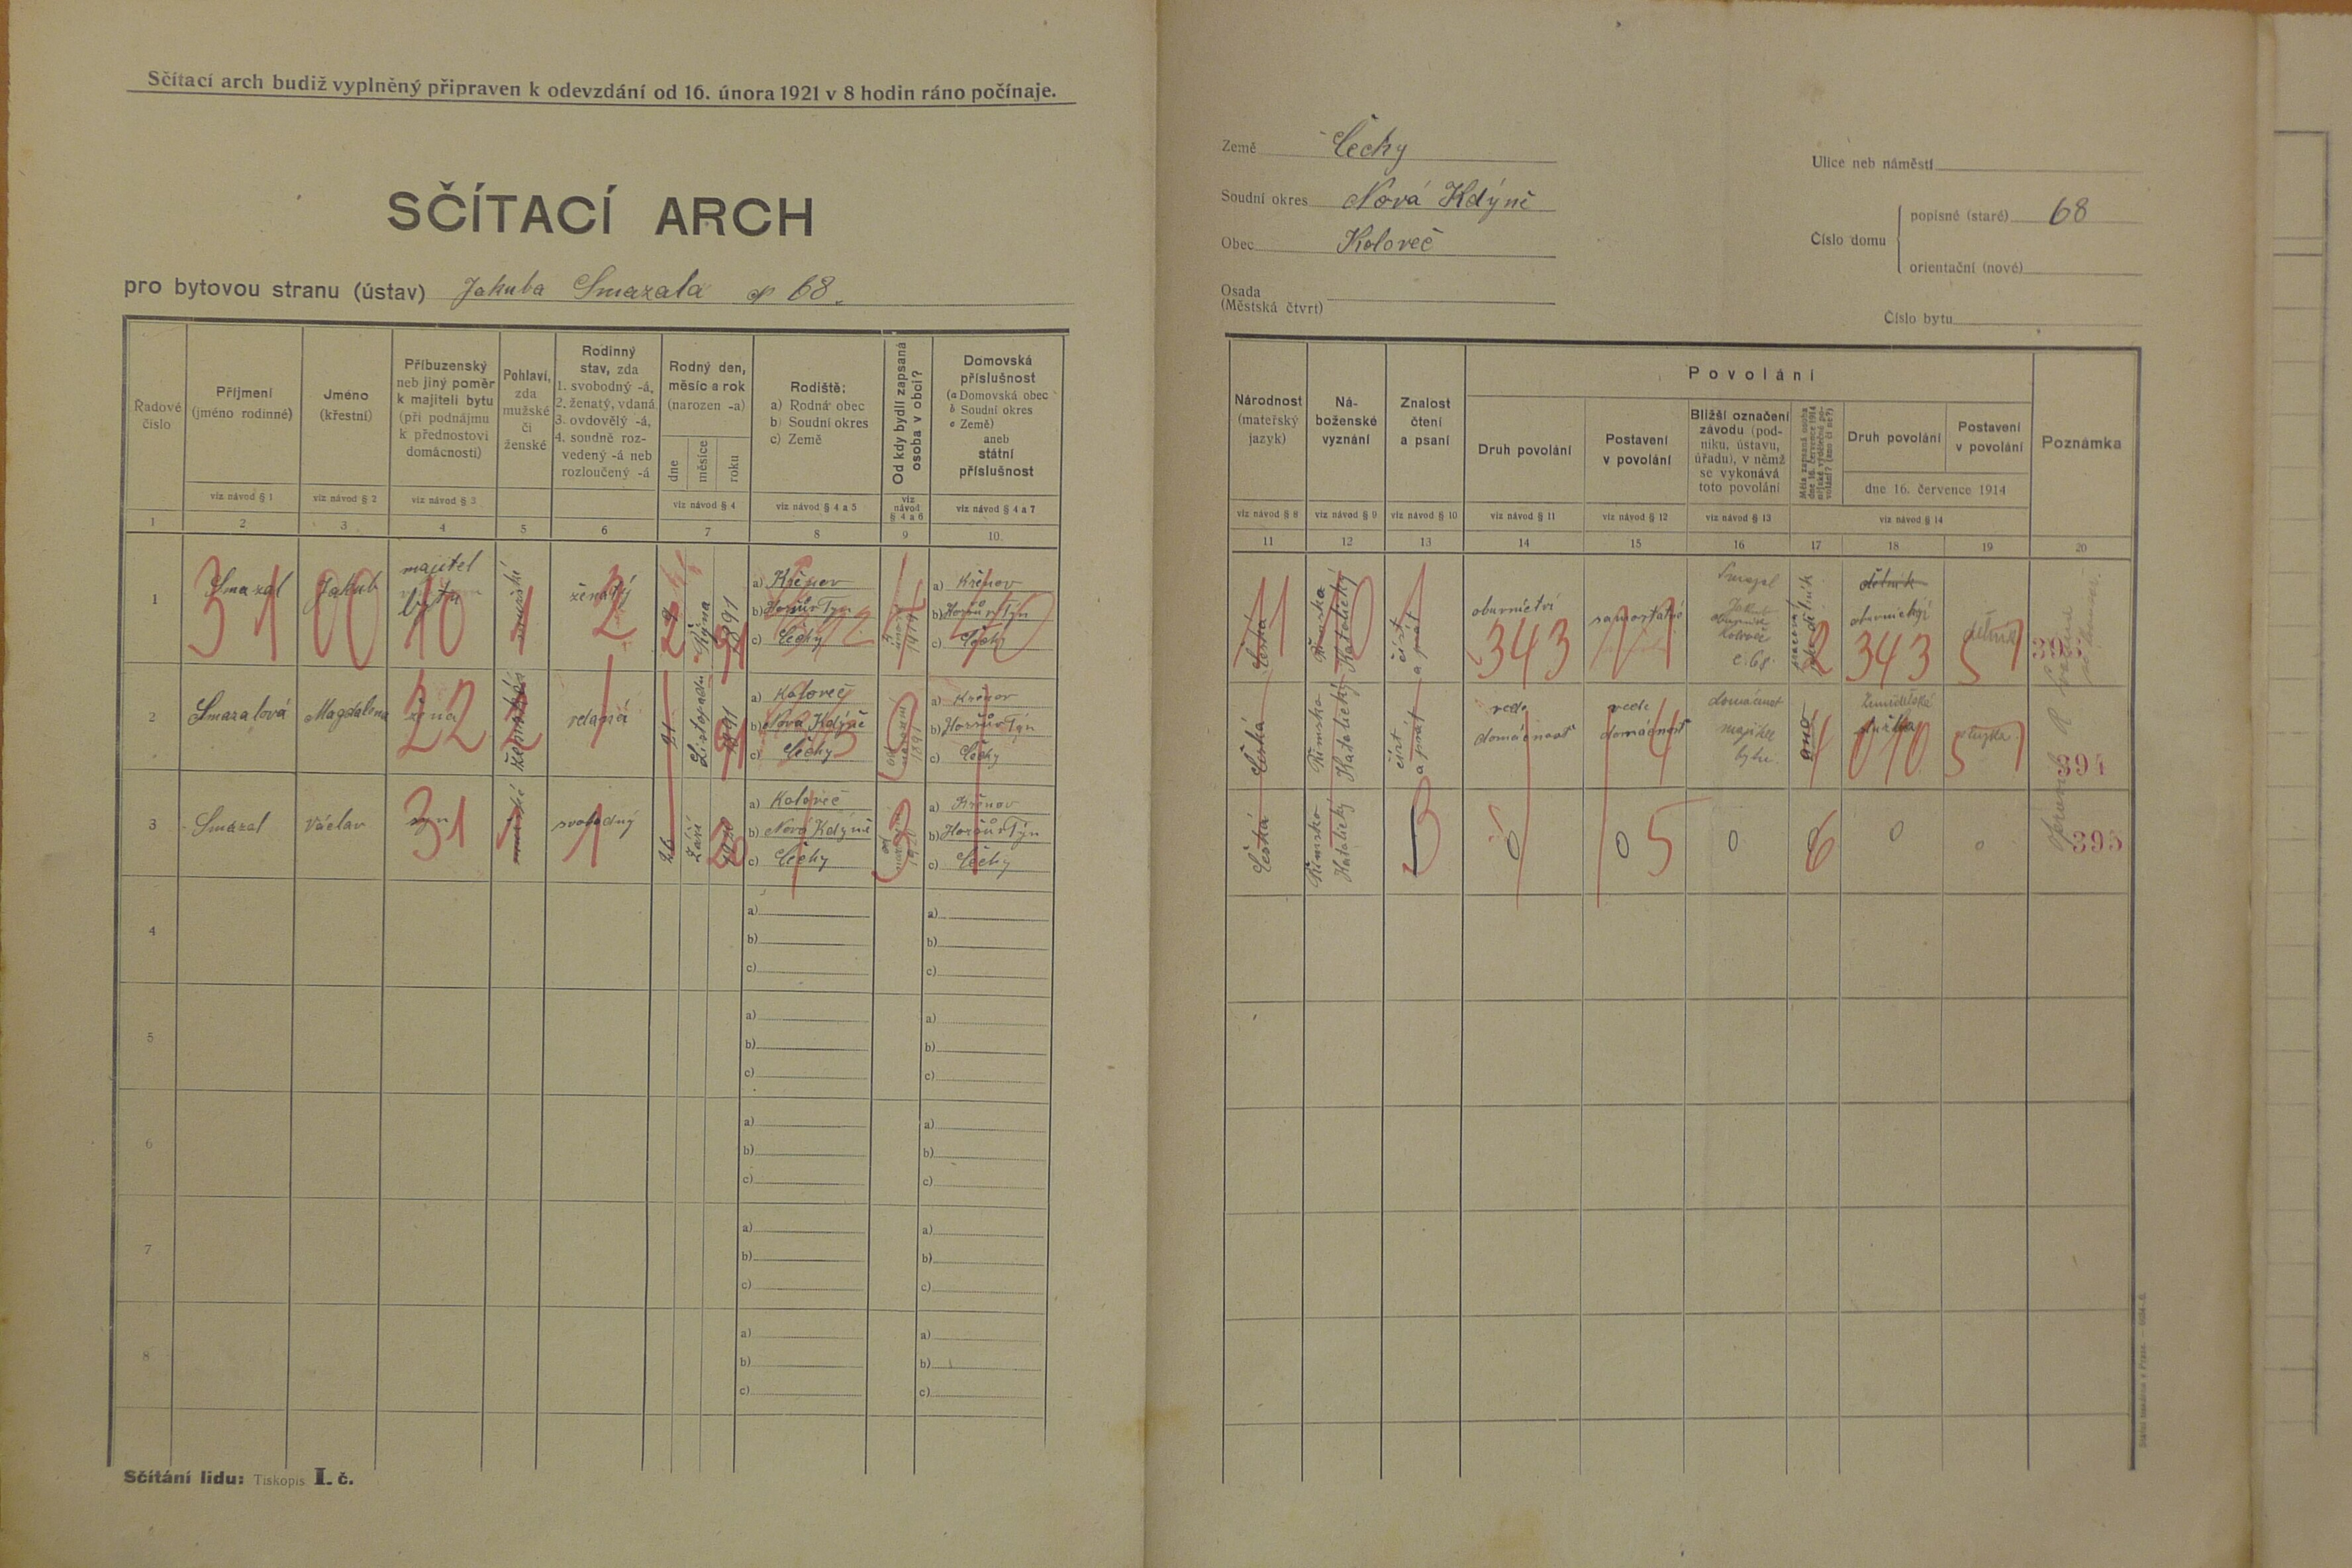 Sčítací arch budiž vyplněný připraven k odevzdání od 16. února 1921 v 8 hodin ráno počínaje.
SČÍTACÍ ARCH
pro bytovou stranu (ústav) Jakuba Smazala 68.
Řadové číslo
Příjmení
(jméno rodinné)
viz návod § 1
Jméno
(křestní)
viz návod § 2
Příbuzenský
neb jiný poměr
k majiteli bytu
(při podnájmu
k přednostovi
domácnosti)
viz návod § 3
Pohlaví,
zda
mužské
či
ženské
Rodinný
stav, zda
1. svobodný -á,
2. ženatý, vdaná
3. ovdovělý -á,
4. soudně roz-
vedený -á neb
rozloučený -á
Rodný den,
měsíc a rok
(narozen -a)
dne
měsíce
roku
viz návod § 4
Rodiště:
a) Rodná obec
b) Soudní okres
c) Země
viz návod § 4 a 5
Od kdy bydlí zapsaná
osoba v obci?
viz
návod
§ 4 a 6
Domovská
příslušnost
(a Domovská obec
b Soudní okres
c Země)
aneb
státní
příslušnost
viz návod § 4 a 7
1 2 3 4 5 6 7 8 9 10
1 Smazal Jakub majitel
bytu
mužské
ženatý
2
Října
1891
a) Křenov
b) Horšův Týn
c) Čechy
a) Křenov
b) Horšův Týn
c) Čechy
31 00 10 1 2
2 Smazalová Magdalena žena
vdaná
21
Listopadu
1891
a) Koloveč
b) Nová Kdýně
c) Čechy
od
narození
1891
a) Křenov
b) Horšův Týn
c) Čechy
22 2
3 Smazal Václav syn
mužské
svobodný
26
Září
1920
a) Koloveč
b) Nová Kdýně
c) Čechy
od
narození
1920
a) Křenov
b) Horšův Týn
c) Čechy
31 1 1 20
4
a)
b)
c)
a)
b)
c)
5
a)
b)
c)
a)
b)
c)
6
a)
b)
c)
a)
b)
c)
7
a)
b)
c)
a)
b)
c)
8
a)
b)
c)
a)
b)
c)
Sčítání lidu: Tiskopis I. č.
Země Čechy
Soudní okres Nová Kdýně
Obec Koloveč
Osada
(Městská čtvrť)
Ulice neb náměstí
Číslo domu
popisné (staré) 68
orientační (nové)
Číslo bytu
Národnost
(mateřský
jazyk)
viz návod § 8
Ná-
boženské
vyznání
viz návod § 9
Znalost
čtení
a psaní
viz návod § 10
Povolání
Druh povolání
viz návod § 11
Postavení
v povolání
viz návod § 12
Bližší označení
závodu (pod-
niku, ústavu,
úřadu), v němž
se vykonává
toto povolání
viz návod § 13
Měla zapsaná osoba
dne 16. července 1914
nějaké výdělečné po-
volání? (ano či ne?)
Druh povolání
Postavení
v povolání
dne 16. července 1914
viz návod § 14
Poznámka
11 12 13 14 15 16 17 18 19 20
česká
Římsko
Katolický
číst
a psát
obuvnictví
343
samostatný
Smazal
Koloveč
č. 68.
2
dělník
obuvnický
343
dělník
51
česká
Římsko
Katolický
číst
a psát
vede
domácnost
vede
domácnost
4
domácnost
majitel
bytu
ano
Zemědělská
služka
010
služka
51
394
česká
Římsko
Katolický
3
0
0 5
0
6
0
0
395